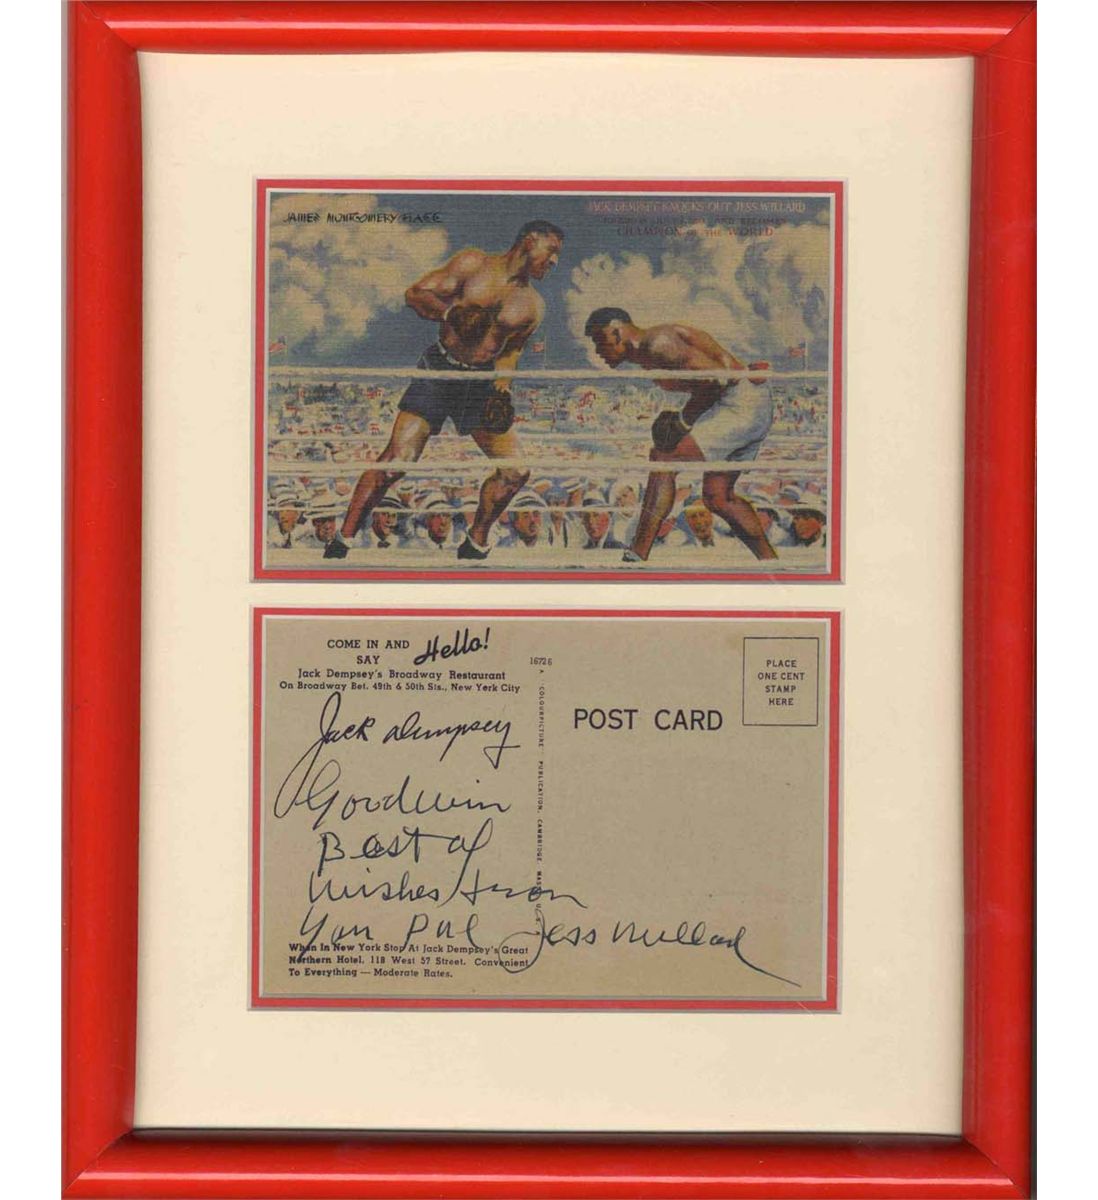 JAMES MONTGOMERY FLAGG
JACK DEMPSEY KNOCKS OUT JESS WILLARD
AND BECOMES
CHAMPION OF THE WORLD
COME IN AND
SAY Hello!
Jack Dempsey's Broadway Restaurant
On Broadway Bet. 49th & 50th Sts., New York City
Jack Dempsey
Goodwin
Best of
Wishes from
Your Pal Jess Willard
When In New York Stop At Jack Dempsey's Great
Northern Hotel, 118 West 57 Street. Convenient
To Everything — Moderate Rates.
16726
A "COLOURPICTURE" PUBLICATION, CAMBRIDGE, MASS., U.S.
POST CARD
PLACE
ONE CENT
STAMP
HERE